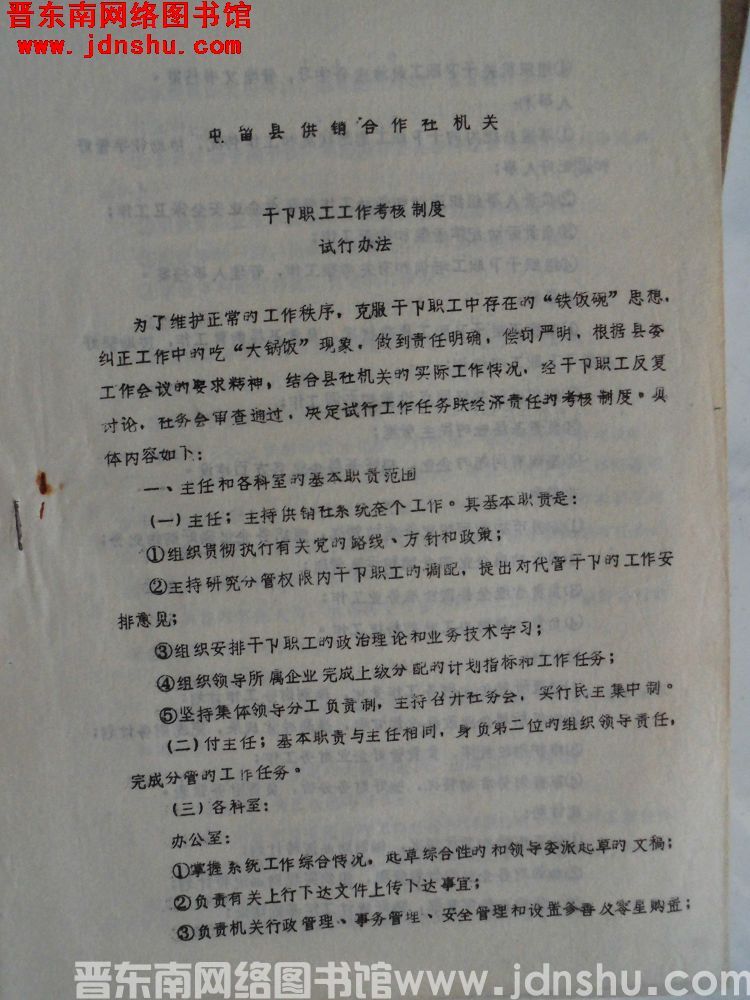 晋东南网络图书馆
www.jdnshu.com
屯留县供销合作社机关
干卩职工工作考核制度
试行办法
为了维护正常的工作秩序，克服干卩职工中存在的“铁饭碗”思想，
纠正工作中的吃“大锅饭”现象，做到责任明确，偿罚严明，根据县委
工作会议的要求精神，结合县社机关的实际工作情况，经干卩职工反复
讨论，社务会审查通过，决定试行工作任务联经济责任的考核制度。具
体内容如下：
一、主任和各科室的基本职责范围
(一)主任；主持供销社系统全个工作。其基本职责是：
①组织贯彻执行有关党的路线、方针和政策；
②主持研究分管权限内干卩职工的调配，提出对代管干卩的工作安
排意见；
③组织安排干卩职工的政治理论和业务技术学习；
④组织领导所属企业完成上级分配的计划指标和工作任务；
⑤坚持集体领导分工负责制，主持召开社务会，实行民主集中制。
(二)付主任；基本职责与主任相同，身负第二位的组织领导责任，
完成分管的工作任务。
(三)各科室：
办公室：
①掌握系统工作综合情况，起草综合性的和领导委派起草的文稿；
②负责有关上行下达文件上传下达事宜；
③负责机关行政管理、事务管理、安全管理和设置参善及零星购置；
晋东南网络图书馆www.jdnshu.com